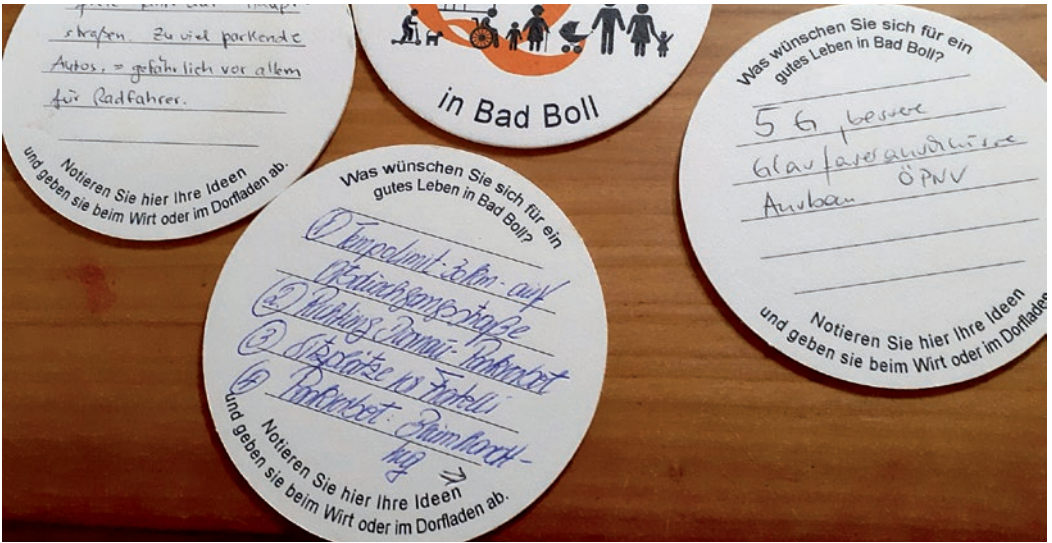 straßen. Zu viel parkende
Autos, = gefährlich vor allem
für Radfahrer.
Notieren Sie hier Ihre Ideen
und geben sie beim Wirt oder im Dorfladen ab.
in Bad Boll
Was wünschen Sie sich für ein
gutes Leben in Bad Boll?
① Tempolimit 30km - auf
Ortsdurchgangsstraße
② Richtung Dürnau: Parkverbot
③ Sitzplätze vor Fratelli
④ Parkverbot:
weg ⇒
Notieren Sie hier Ihre Ideen
und geben sie beim Wirt oder im Dorfladen ab.
Was wünschen Sie sich für ein
gutes Leben in Bad Boll?
5 G, bessere
Glasfaseranschlüsse
Ausbau ÖPNV
Notieren Sie hier Ihre Ideen
und geben sie beim Wirt oder im Dorfladen